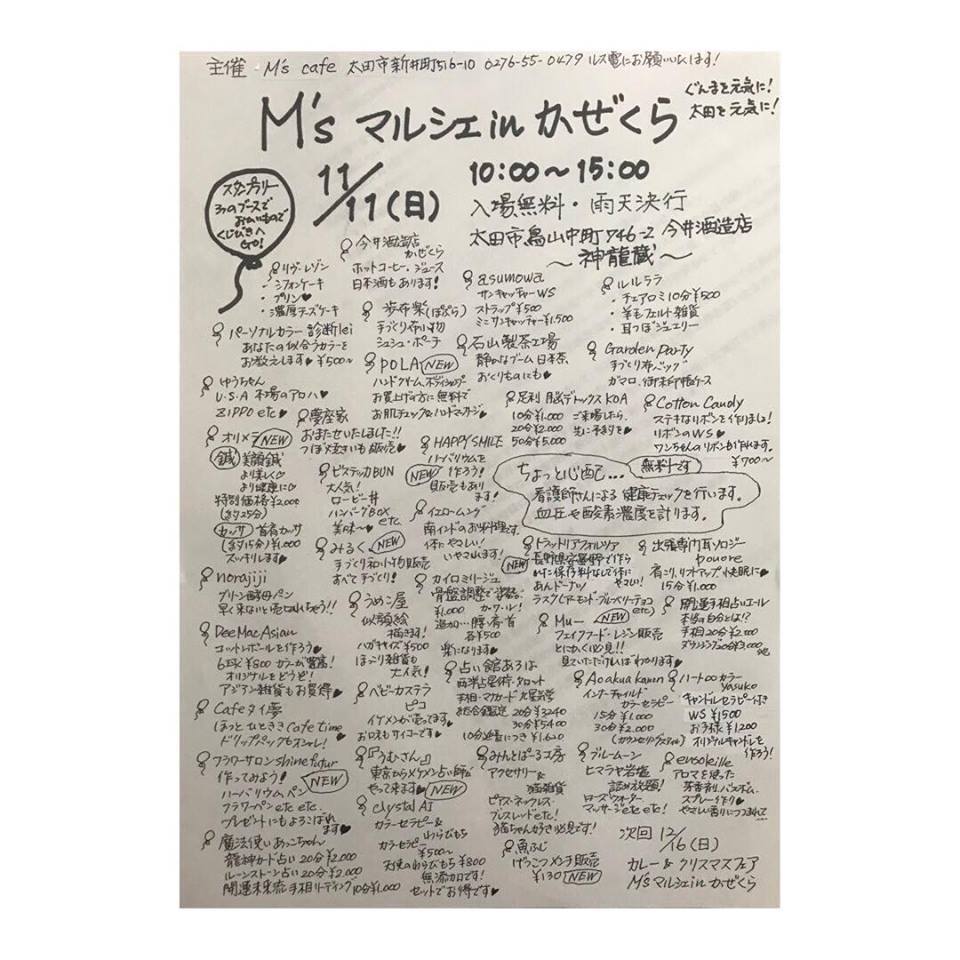 主催・M's cafe 太田市新井町516-10 0276-55-0479 ルス電にお願いします!
ぐんまを元気に!
太田を元気に!
M's マルシェ in かぜくら
スタンプラリー
3つのブースで
おかいもので
くじびきへ
GO!
11/11(日)
10:00~15:00
入場無料・雨天決行
太田市鳥山中町746-2 今井酒造店
~神龍蔵~
リヴ・レゾン
・シフォンケーキ
・プリン♥
・濃厚チーズケーキ
今井酒造店
かぜくら
ホットコーヒー・ジュース
日本酒もあります!
asumowa
サンキャッチャーWS
ストラップ¥500
ミニサンキャッチャー¥1,500
ルルララ
・チェアロミ10分¥500
・羊毛フェルト雑貨
・耳つぼジュエリー
パーソナルカラー診断lei
あなたの似合うカラーを
お教えします♥ ¥500~
歩布楽(ぽぷら)
手づくり布小物
シュシュ・ポーチ
石山製茶工場
静かなブーム日本茶
おくりものにも♥
Garden Party
手づくり布バッグ
ガマ口、御朱印帳ケース
ゆうちゃん
U.S.A 本場のアロハ♥
ZIPPO etc♥
POLA NEW
ハンドクリーム、ボディシャンプー
お買上げの方に無料で
お肌チェック&ハンドマッサージ♥
足利 脳デトックス KOA
10分¥1,000 ご来場したら、
20分¥2,000 先に予約を♥
50分¥5,000
Cotton Candy
ステキなリボンを作りましょ!
リボンのWS♥
ワンちゃんのリボンも作れます。
¥700~
オリメラ NEW
鍼 美顔鍼
より美しく♡
より健康に♡
特別価格¥2,000
(約25分)
カッサ 首肩カッサ
(約15分)¥1,000
スッキリします♥
夢庵家
おまたせいたしました!!
つぼ焼きいも販売♥
HAPPY SMILE
ハーバリウムを
作ろう!
NEW 販売もあり
ます!
ちょっと心配... 無料です
看護師さんによる健康チェックを行います。
血圧や酸素濃度を計ります。
ビステッカBUN
大人気!
ロービー丼
ハンバーグBOX
美味~♥ etc
イエロームング
南インドのお料理です。
体にやさしい!
いやされます!
みるく NEW
手づくり和小物販売
すべて手づくり!
トラットリアフォルツァ
NEW
あんドーナツ
出張専門耳ツロジー
pouore
肩こり、リフトアップ、快眠に♥
15分¥1,000
norajiji
グリーン酵母パン
早く来ないと売り切れちゃう!!
うめこ屋
似顔絵
描きます!
ハガキサイズ¥500
ほっこり雑貨も
大人気!
カイロミリージュ
¥1,000
追加... 腰・肩・首
各¥500
楽になります♥
Mu- NEW
フェイクフード・レジン販売
とにかく必見!!
見ていただければわかります♥
開運手相占いエール
本当の自分とは!?
手相20分¥2,000
ダウジング20分¥3,000
DeeMacAsian
コットンボールを作ろう♥
6球¥800 カラーが豊富!
オリジナルをどうぞ!
アジアン雑貨もお買得♥
占い館あろは
西洋占星術・タロット
手相・マカカード・九星気学
総合鑑定 20分¥3240
30分¥5400
10分延長につき¥1,620
Aoakua kanon
インナーチャイルド
カラーセラピー
15分¥1,000
30分¥2,000
ハート∞カラー
Yasuko
キャンドルセラピー付き
WS ¥1500
お子様¥1,200
オリジナルキャンドルを
作ろう!
Cafe タイ夢
ほっとひとときcafe time
ドリップパックもオシャレ!
ベビーカステラ
ピコ
イケメンが売ってます♥
お口もサイコーです♥
フラワーサロンshine futur
作ってみよう! NEW
ハーバリウムペン
フラワーペン etc etc.
プレゼントにもよろこばれ
ます♥
『うむさん』
東京からイケメン占い師が
やって来ます♥ NEW
みんとぱーる工房
アクセサリー&
猫雑貨
ピアス・ネックレス・
ブレスレットetc!
猫ちゃん好き必見です!
ブルームーン
ヒマラヤ岩塩
詰め放題!
ローズウォーター
マッサージetc etc!
ensoleille
アロマを使った
芳香剤、バスボム、
スプレー作り♥
やさしい香りにつつまれて♥
clystal AI
カラーセラピー&
わらびもち
カラーセラピー
¥500~
天使のわらびもち¥800
無添加です!
セットでお得です♥
魔法使いあっちゃん
龍神カード占い20分¥2,000
ルーンストーン占い20分¥2,000
開運未来療手相リーディング10分¥1,000
魚ふじ
げっこつメンチ販売
¥130 NEW
次回 12/16(日)
カレー&クリスマスフェア
M'sマルシェinかぜくら